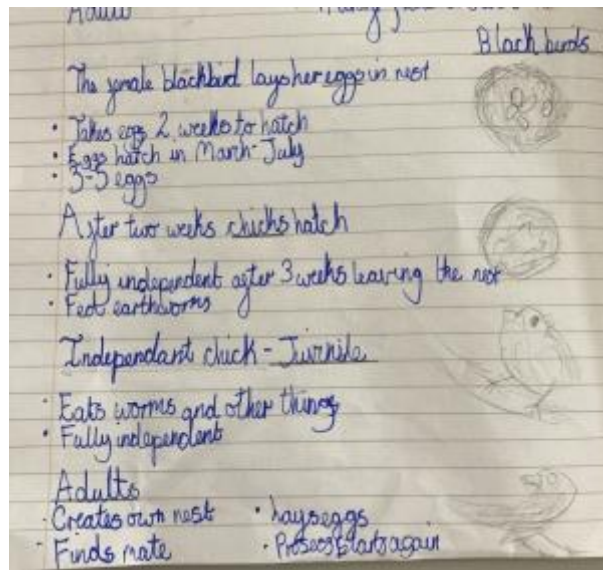 Black birds
The female blackbird lays her eggs in nest
• Takes egg 2 weeks to hatch
• Eggs hatch in March-July
• 3-5 eggs
After two weeks chicks hatch
• Fully independent after 3 weeks leaving the nest
• Fed earthworms
Independant chick - Juvnile
• Eats worms and other things
• Fully independent
Adults
• Creates own nest • lays eggs
• Finds mate • Prosess starts again